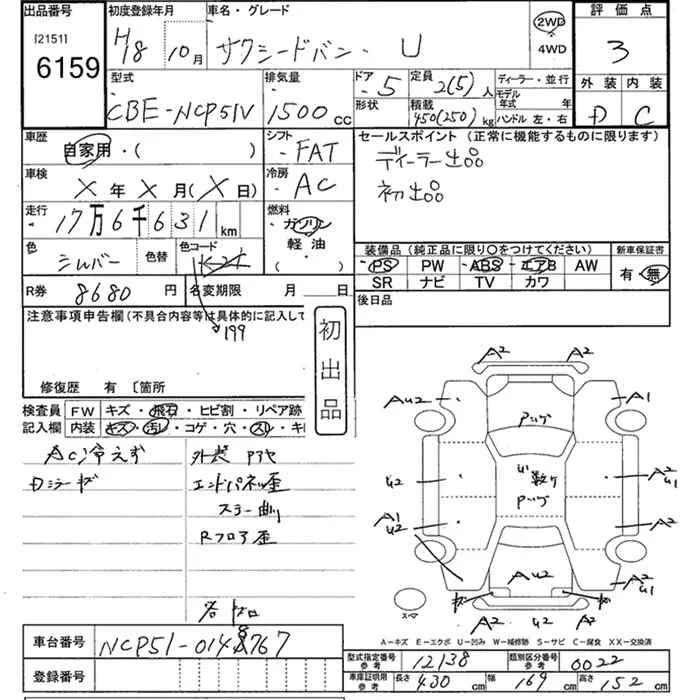 出品番号 初度登録年月 車名・グレード 2WD 評価点
[2151] 6159 H18 10月 サクシードバン・ U 4WD 3
型式 排気量 ドア 定員 ディーラー・並行 外装 内装
CBE-NCP51V 1500 CC 5 2(5)人 モデル年式 年 D C
形状 積載 450(250)kg ハンドル 左・右
車歴 シフト セールスポイント (正常に機能するものに限ります)
自家用・( ) FAT ディーラー出品
車検 冷房 初出品
X年X月(X日) AC
走行 燃料
17万6千631km ガソリン
色 色替 色コード 軽油 装備品 (純正品に限り○をつけてください) 新車保証書
シルバー ( ) PS PW ABS エアB AW 有・無
SR ナビ TV カワ
R券 8680円 名変期限 月 日 後日品
注意事項申告欄(不具合内容等は具体的に記入して
199
初出品
修復歴 有 〔箇所
検査員 FW キズ・飛石・ヒビ割・リペア跡
記入欄 内装 キズ・汚レ・コゲ・穴・スレ・キ
AC冷えず 外装
エンドパネル歪
Rフロア歪
A2 A2
AU2 A1
U2 A2 U1
A1 U2 A2
AU2 A2 U1
A2 U2 A2
スペア
A-キズ E-エクボ U-凹み W-補修跡 S-サビ C-腐食 XX-交換済
車台番号 NCP51-0148767
型式指定番号 参考 12138 類別区分番号 参考 0022
登録番号 車庫証明用 参考 長さ 430cm 幅 169cm 高さ 152cm